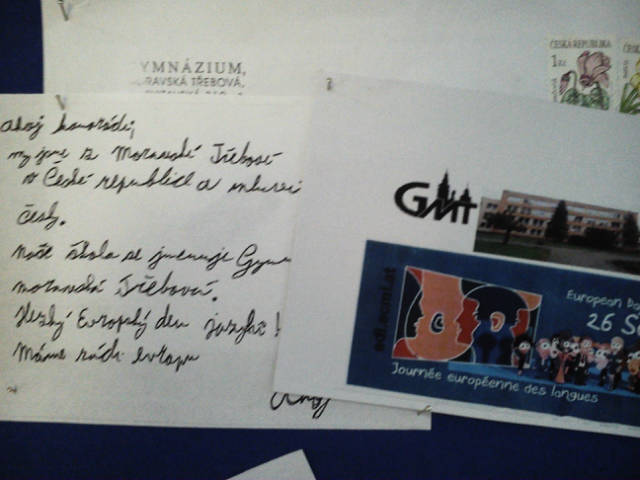 YMNÁZIUM,
RAVSKÁ TŘEBOVÁ,
ČESKÁ REPUBLIKA
1 Kč
ČESK
Ahoj kamarádi,
my jsme z Moravské Třebové
v České republice a mluví
česky.
Naše škola se jmenuje Gym
moravská Třebová.
Hezký Evropský den jazyků!
Máme rádi evropu
Ahoj
GMT
edl.ecml.at
European D
26 S
Journée européenne des langues